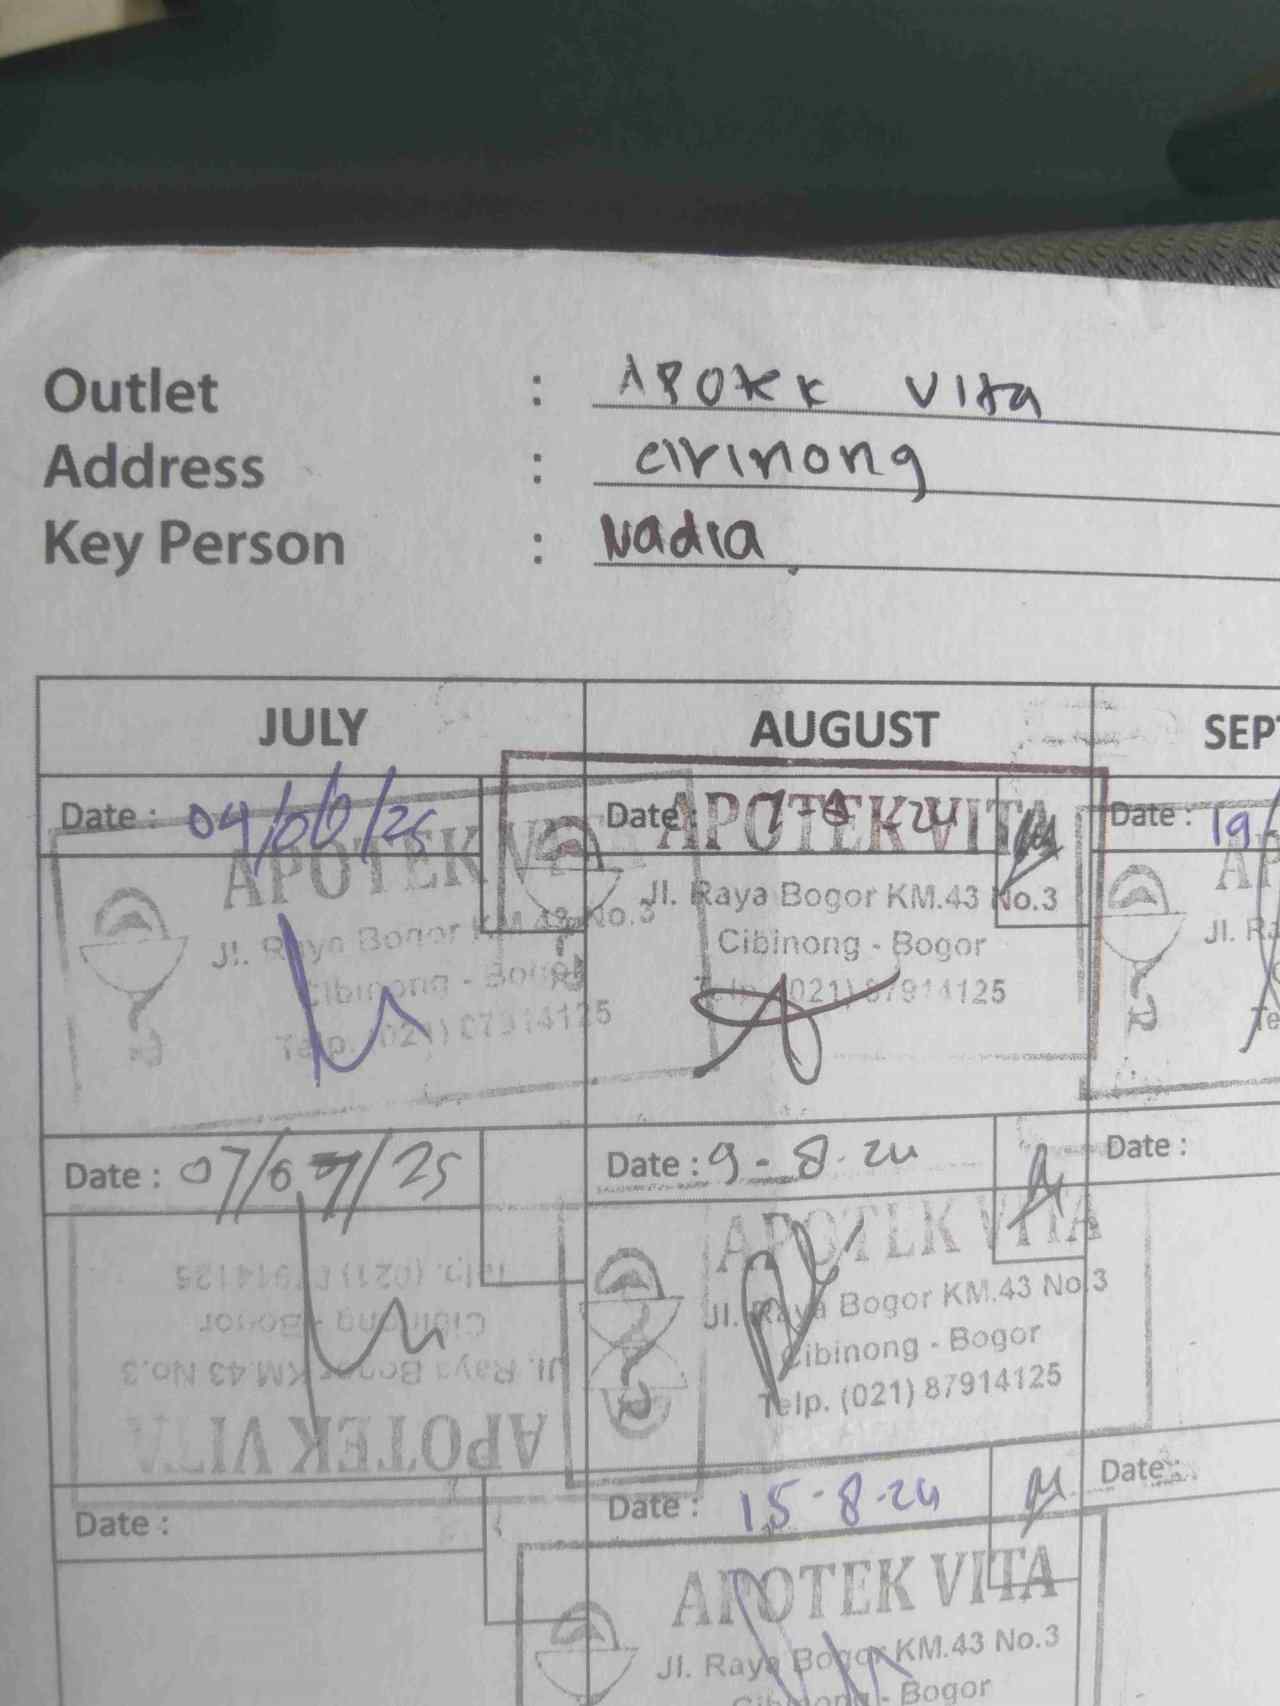 Outlet : APOTEK VITA
Address : CIBINONG
Key Person : Nadia
JULY AUGUST SEPT
Date : 04/ /25
APOTEK VI
Jl. Raya Bogor KM.43 No.3
Cibinong - Bogor
Telp. (021) 87914125
Date : 7-8-24
APOTEK VITA
Jl. Raya Bogor KM.43 No.3
Cibinong - Bogor
Telp. (021) 87914125
Date : 19/
AP
Jl. Ra
Te
Date : 07/07/25
APOTEK VITA
Jl. Raya Bogor KM.43 No.3
Cibinong - Bogor
Telp. (021) 87914125
Date : 9-8-24
APOTEK VITA
Jl. Raya Bogor KM.43 No.3
Cibinong - Bogor
Telp. (021) 87914125
Date :
Date :
Date : 15-8-24
APOTEK VITA
Jl. Raya Bogor KM.43 No.3
Cibinong - Bogor
Date :